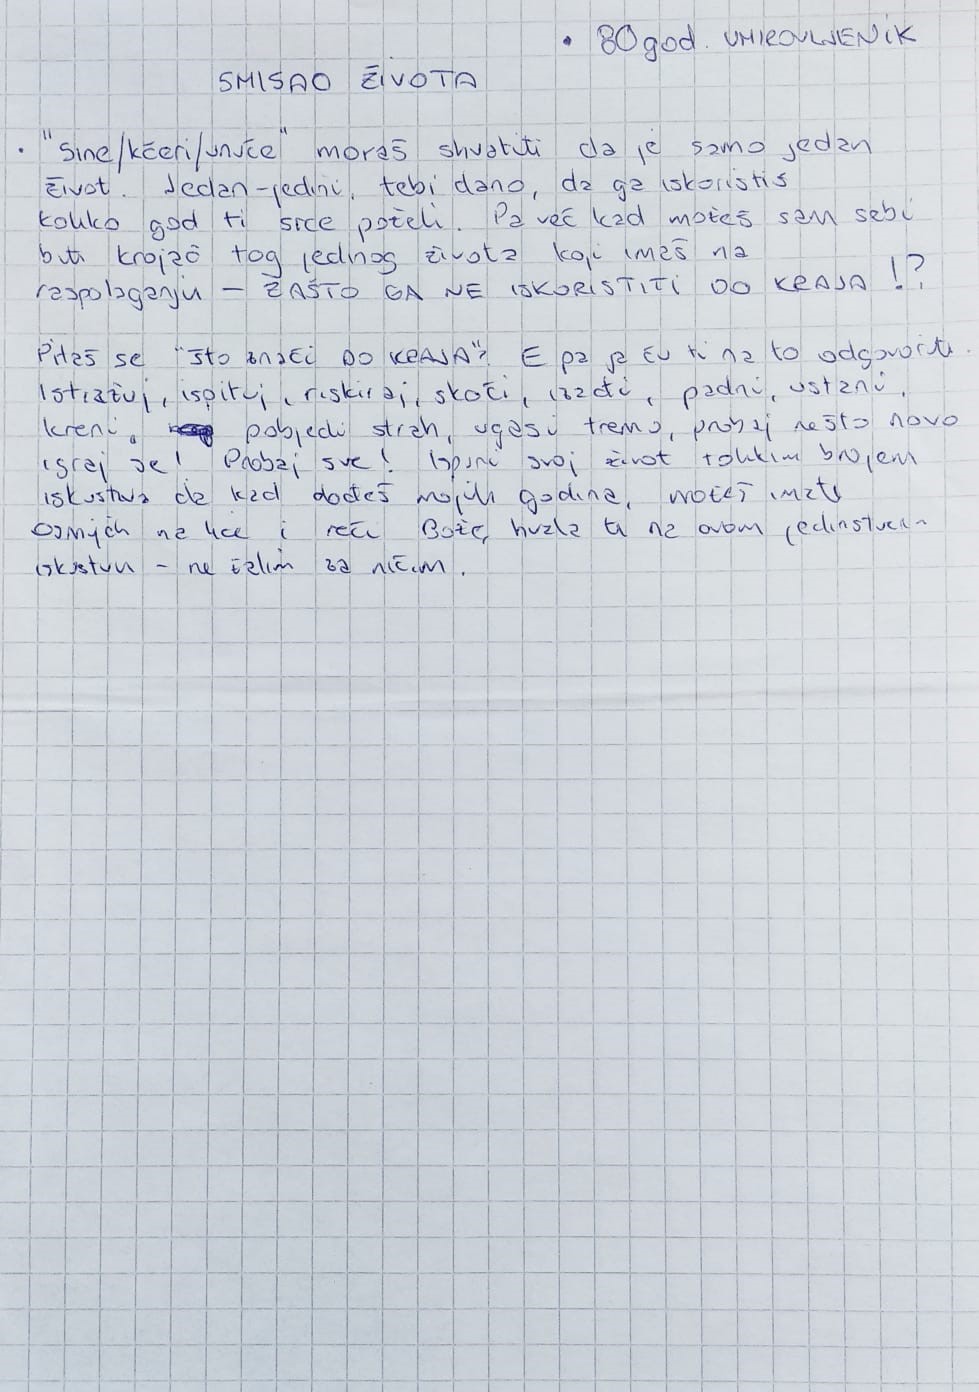 • 80 god. UMIROVLJENIK
SMISAO ŽIVOTA
• "Sine/kćeri/unuče" moraš shvatiti da je samo jedan
život. Jedan-jedini, tebi dano, da ga iskoristis
koliko god ti srce poželi. Pa već kad možeš sam sebi
biti krojač tog jednog života koji imaš na
raspolaganju - ZAŠTO GA NE ISKORISTITI DO KRAJA !?
Pitaš se "što znači DO KRAJA"? E pa ja ću ti na to odgovoriti.
Istražuj, ispituj, riskiraj, skoči, izađi, padni, ustani,
kreni, pobjedi strah, ugasi tremu, probaj nešto novo
igraj se! Probaj sve! Ispuni svoj život tolikim brojem
iskustva da kad dođeš mojih godina, možeš imati
osmjeh na lice i reći Bože, hvala ti na ovom jedinstvenom
iskustvu - ne žalim za ničim.